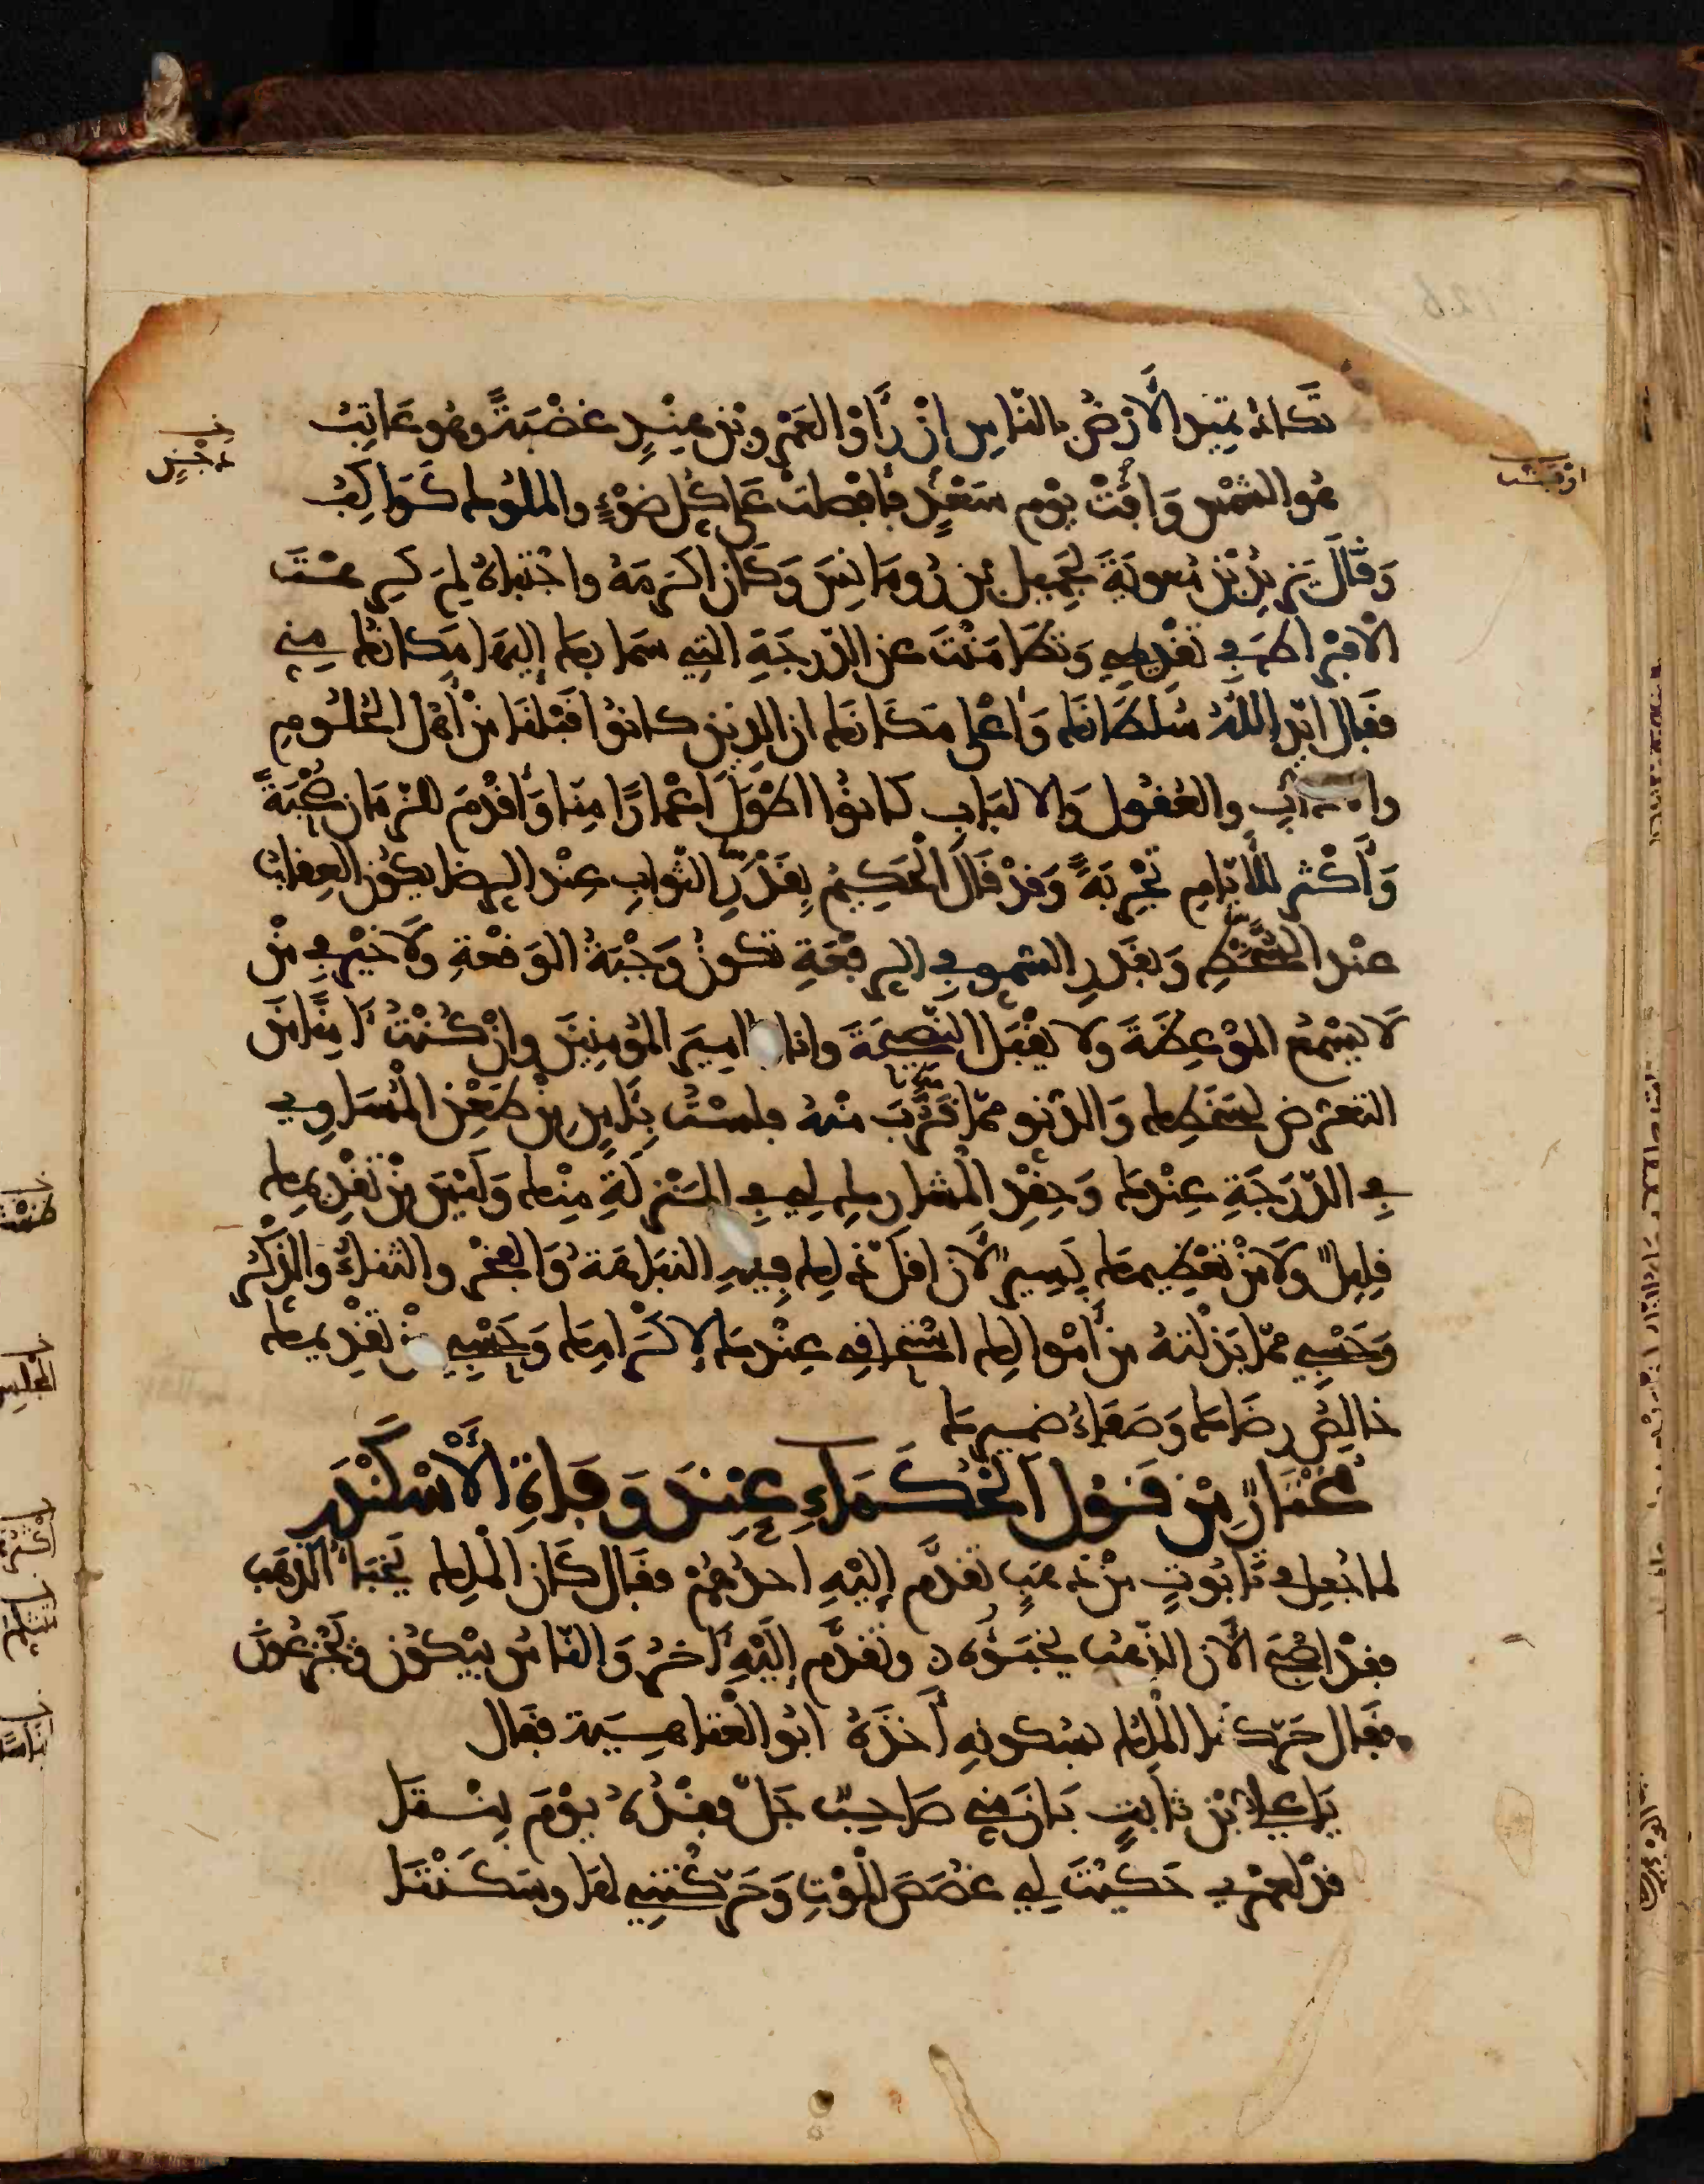 تكاد تميد الأرض بالناس إن رأوا لعمرو بن هند غضبة وهو عاتب
هو الشمس وافت يوم سعد فأفضلت على كل ضوء والملوك كواكب
وَقَالَ يزيد بن معوية لجميل بن رومانس وكان أكرمه واجتباه لم كرهت
الافراط في تقديمي وتطامنت عن الدرجة التي سما بك إليها مكانك مني
فقال ايد الله سلطانك وأعلى مكانك ان الذين كانوا قبلنا من أهل العلوم
والآداب والعقول والالباب كانوا اطول أعمارا منا وأقدم للزمان صحبة
وأكثر للأيام تجربة وقد قال الحكيم بقدر الثواب عند الرضا يكون العقاب
عند السخط وبقدر السمو في الرفعة تكون وجبة الوقعة ولا خير في من
لا يسمع الموعظة ولا يقبل النصيحة وانا يا امير المؤمنين وان كنت آمنا من
التعرض لسخطك والدنو مما قرب منه فلست بآمن من طعن المساوي
في الدرجة عندك وحقد المشارك لي في المنزلة منك وليس من تقديمك
قليل ولا من تعظيمك يسير لأن اقل ذلك فيه النباهة والفخر والثناء والذكر
وحسبي مما بذلته من أموالك استحقاقي عندك لإكرامك وحسبي من تقديمك
خالص رضاك وصفاء ضميرك
مختار من قول الحكماء عند وفاة الأسكندر
لما جعل في تابوت من ذهب تقدم إليه احدهم فقال كان الملك يخبأ الذهب
فقد اصبح الآن الذهب يخبؤه ن وتقدم إليه آخر والناس يبكون ويجزعون
فقال حركنا الملك بسكونه أخذه ابو العتاهية فقال
يا علي بن ثابت بان مني صاحب جل فقده يوم بنتا
قد لعمري حكيت لي غصص الموت وحركتني لها وسكنتا